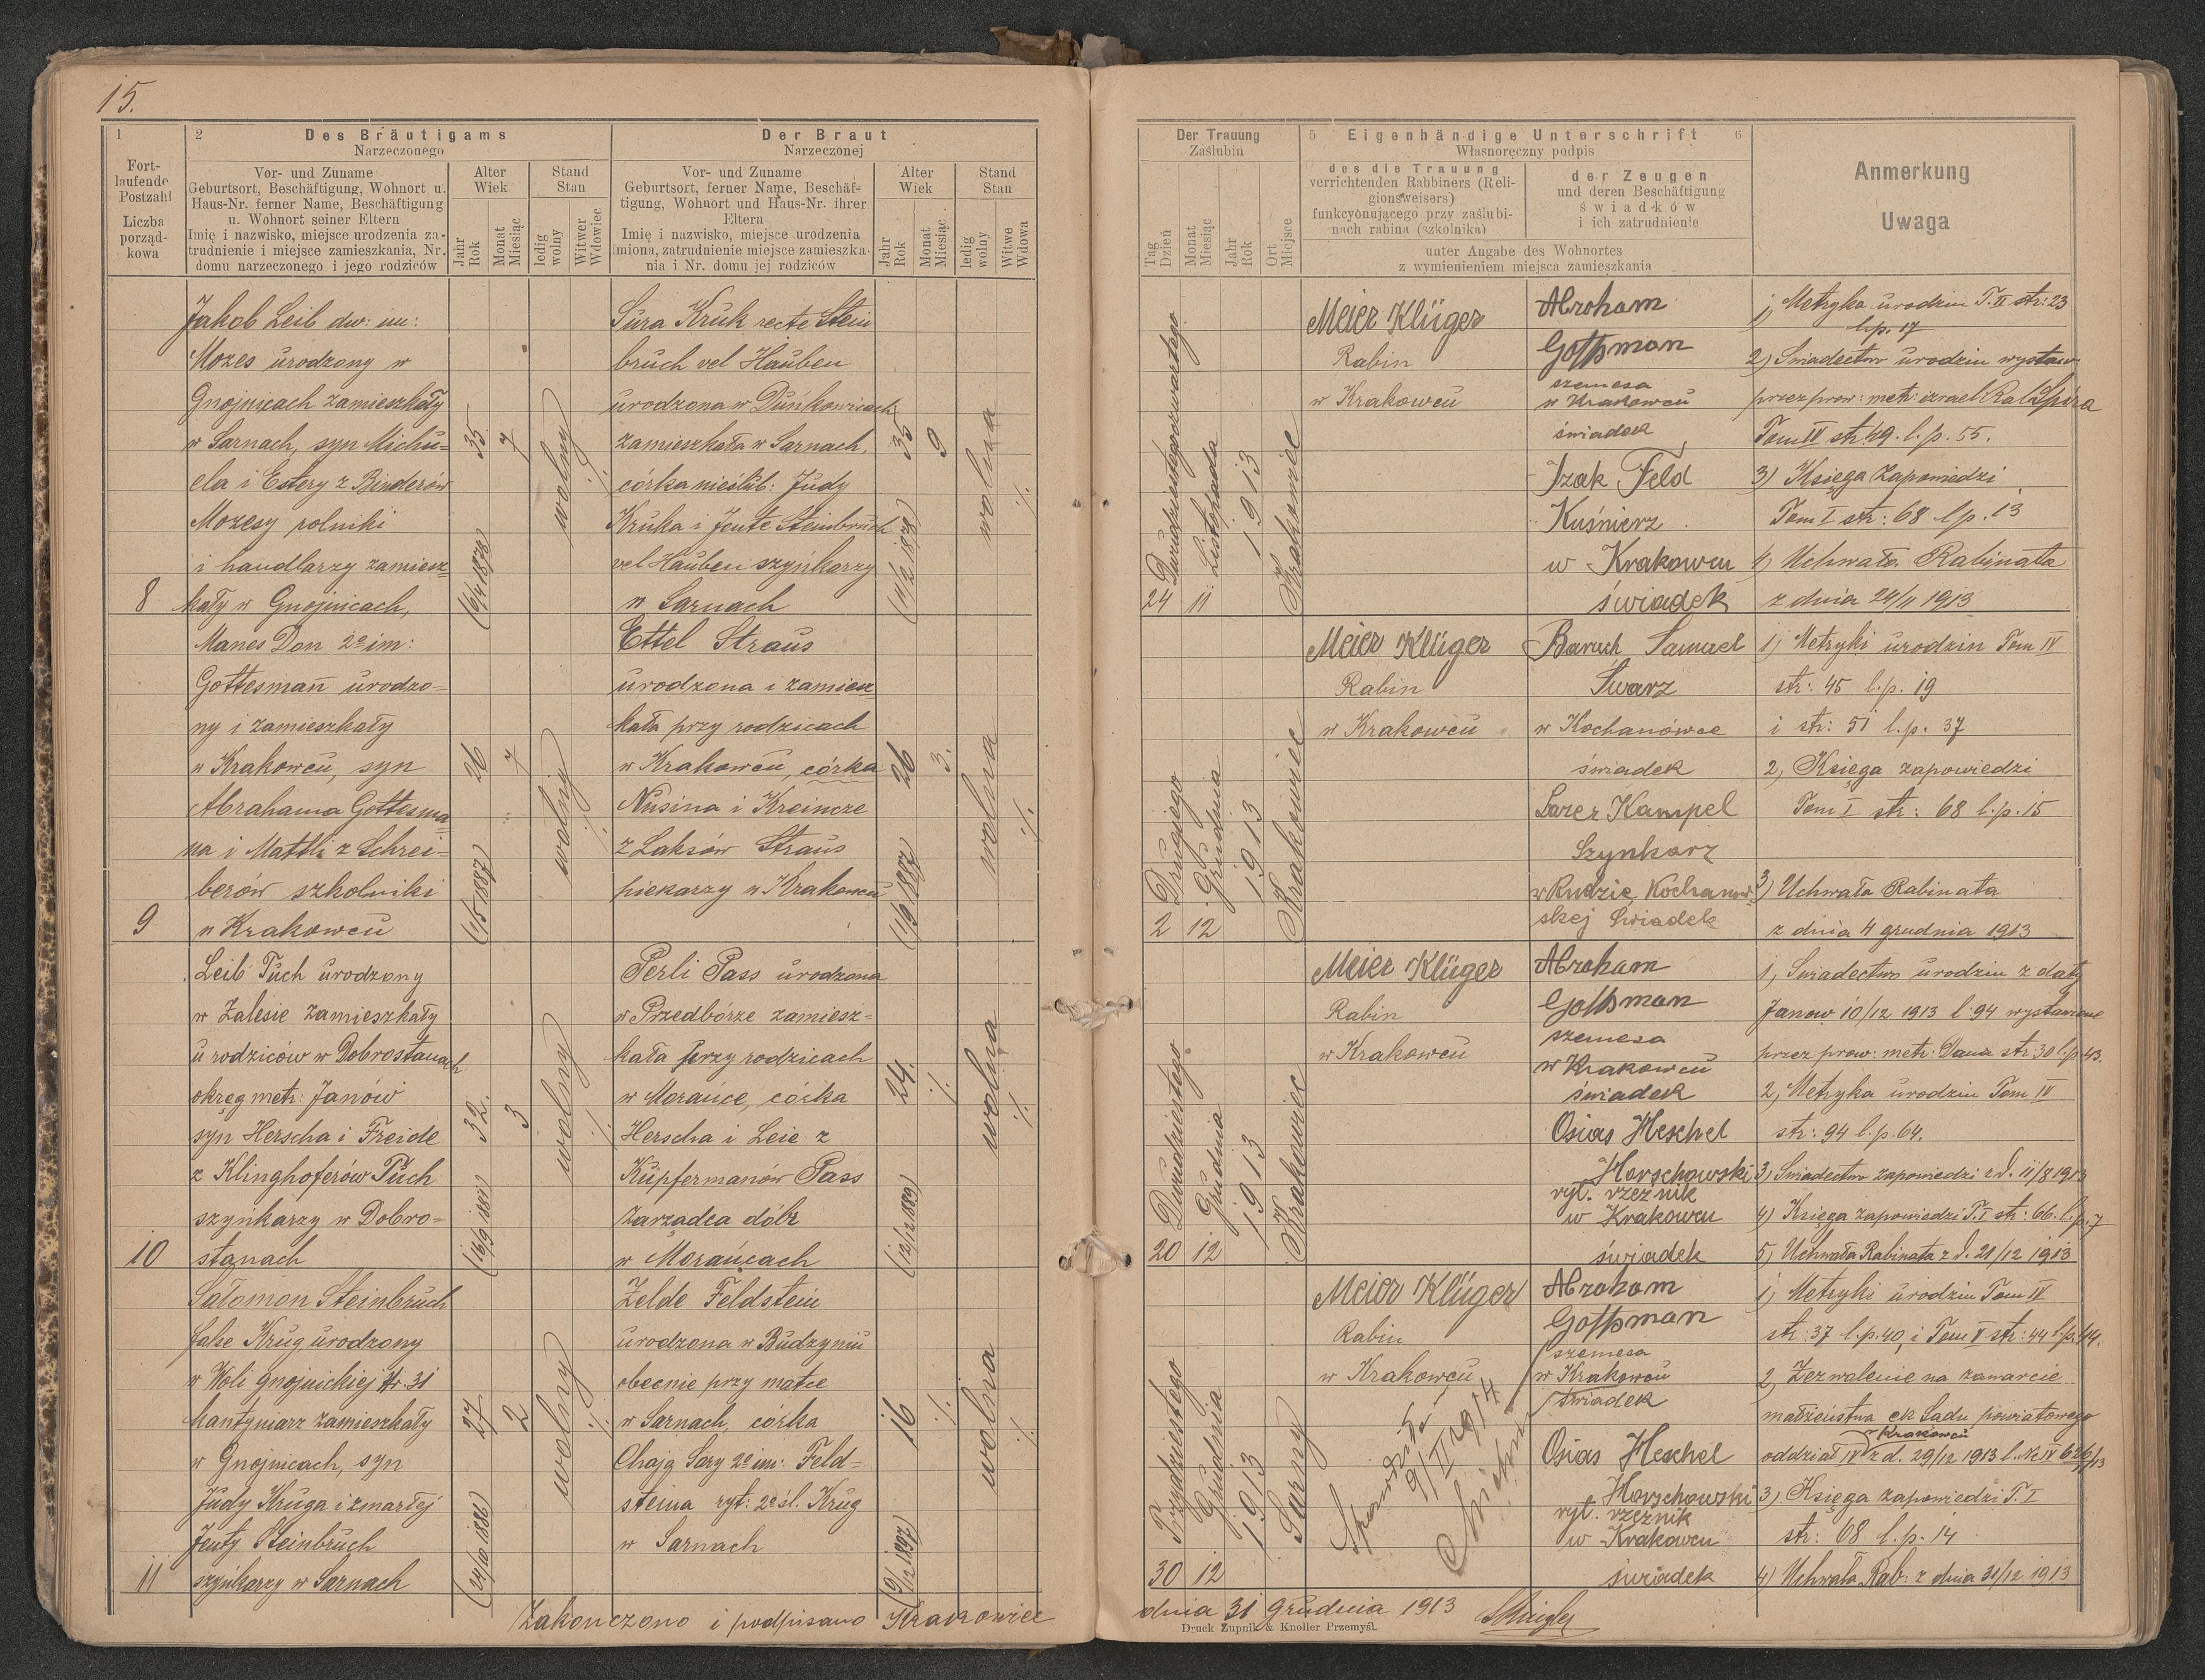 15.
1
Fort-
laufende
Postzahl
Liczba
porząd-
kowa
2
Des Bräutigams
Narzeczonego
Vor- und Zuname
Geburtsort, Beschäftigung, Wohnort u.
Haus-Nr. ferner Name, Beschäftigung
u. Wohnort seiner Eltern
Imię i nazwisko, miejsce urodzenia za-
trudnienie i miejsce zamieszkania, Nr.
domu narzeczonego i jego rodziców
Alter
Wiek
Jahr
Rok
Monat
Miesiąc
Stand
Stan
ledig
wolny
Witwer
Wdowiec
Der Braut
Narzeczonej
Vor- und Zuname
Geburtsort, ferner Name, Beschäf-
tigung, Wohnort und Haus-Nr. ihrer
Eltern
Imię i nazwisko, miejsce urodzenia
imiona, zatrudnienie miejsce zamieszka-
nia i Nr. domu jej rodziców
Alter
Wiek
Jahr
Rok
Monat
Miesiąc
Stand
Stan
ledig
wolny
Witwe
Wdowa
Der Trauung
Zaślubin
Tag
Dzień
Monat
Miesiąc
Jahr
Rok
Ort
Miejsce
5 Eigenhändige Unterschrift 6
Własnoręczny podpis
des die Trauung
verrichtenden Rabbiners (Reli-
gionsweisers)
funkcyonującego przy zaślubi-
nach rabina (szkolnika)
der Zeugen
und deren Beschäftigung
świadków
i ich zatrudnienie
unter Angabe des Wohnortes
z wymienieniem miejsca zamieszkania
Anmerkung
Uwaga
8
Jakob Leib dw: im:
Mozes urodzony w
Gnojnicach zamieszkały
w Sarnach, syn Michu=
ela i Estery z Binderów
Mozesy rolniki
i handlarzy zamiesz=
kały w Gnojnicach,
35
(16/4 1878)
7
wolny
Sura Kruk recte Stein
bruch vel Hauben
urodzona w Duńkowicach
zamieszkała w Sarnach,
córka nieślub: Judy
Kruka i Jente Steinbruch
vel Hauben szynkarzy
w Sarnach
35
(11/2 1878)
9
wolna
24
Dwudziestegoczwartego
11
Listopada
1913
Krakowiec
Meier Klüger
Rabin
w Krakowcu
Abraham
Gottsman
szemesa
w Krakowcu
świadek
Izak Feld
Kuśnierz
w Krakowcu
świadek
1, Metryka urodzin T. II str: 23
l.p. 17
2) Swiadectwo urodzin wystaw
przez prow: metr: izrael Rafa Spira
Tom IV str. 49. l.p. 55.
3) Księga Zapowiedzi
Tom I str: 68 l.p. 13
4) Uchwała Rabinata
z dnia 24/11 1913
9
Manes Don 2° im:
Gottesman urodzo=
ny i zamieszkały
w Krakowcu, syn
Abrahama Gottesma
na i Mattli z Schrei=
berów szkolniki
w Krakowcu
26
(1/5 1887)
7
wolny
Ettel Straus
urodzona i zamiesz
kała przy rodzicach
w Krakowcu, córka
Nusina i Kreincze
z Laksów Straus
piekarzy w Krakowcu
26
(1/9 1887)
3.
wolna
2
Drugiego
12
Grudnia
1913
Krakowiec
Meier Klüger
Rabin
w Krakowcu
Baruch Samuel
Swarz
w Kochanówce
świadek
Lazer Kampel
Szynkarz
w Rudzie Kochanow
skej Swiadek
1) Metryki urodzin Tom IV
str: 45 l.p. 19
i str: 51 l.p. 37
2, Księga zapowiedzi
Tom I str: 68 l.p. 15
3) Uchwała Rabinata
z dnia 4 grudnia 1913
10
Leib Tuch urodzony
w Zalesie zamieszkały
u rodziców w Dobrostanach
okręg metr: Janów
syn Herscha i Freide
z Klinghoferów Tuch
szynkarzy w Dobro=
stanach
32.
(16/9 1881)
3
wolny
Perli Pass urodzona
w Przedbórze zamiesz=
kała przy rodzicach
w Morańce, córka
Herscha i Leie z
Kupfermanów Pass
zarządca dóbr
w Morańcach
24.
(12/12 1889)
wolna
20
Dwudziestego
12
Grudnia
1913
Krakowiec
Meier Klüger
Rabin
w Krakowcu
Abraham
Gottsman
szemesa
w Krakowcu
świadek
Osias Heschel
Horschowski
ryt. rzeznik
w Krakowcu
świadek
1, Swiadectwo urodzin z daty
Janow 10/12 1913 l: 94 wystawione
przez prow: metr: Dawa str 30 l.p. 43.
2, Metryka urodzin Tom IV
str: 94 l.p. 64.
3) Swiadectwo zapowiedzi z d. 11/8 1913
4) Księga zapowiedzi T. I str: 66. l.p. 7
5) Uchwała Rabinata z d. 21/12 1913
11
Salomon Steinbruch
false Krug urodzony
w Woli gnojnickiej Nr. 31
kantyniarz zamieszkały
w Gnojnicach, syn
Judy Kruga i zmarłej
Jenty Steinbruch
szynkarzy w Sarnach
27
(24/10 1886)
2
wolny
Zelde Feldstein
urodzona w Budzyniu
obecnie przy matce
w Sarnach, córka
Chają Sary 2° im: Feld=
steina ryt: 2° śl. Krug
w Sarnach
16
(9/12 1897)
wolna
30
Trzydziestego
12
Grudnia
1913
Sarny
Meier Klüger
Rabin
w Krakowcu
9/II 1914
Abraham
Gottsman
szemesa
w Krakowcu
świadek
Osias Heschel
Horschowski
ryt. rzeznik
w Krakowcu
świadek
1, Metryki urodzin Tom IV
str: 37 l.p. 40, i Tom V str: 44 l.p. 44.
2, Zezwolenie na zawarcie
małżeństwa ck Sadu powiatowego
w Krakowcu
oddział IV z d. 29/12 1913 l. Nc IV 626/13
3) Księga zapowiedzi T. I
str: 68 l.p. 14
4) Uchwała Rab: z dnia 31/12 1913
Zakończono i podpisano Krakowiec
dnia 31 Grudnia 1913
Druck Żupnik & Knoller Przemyśl.